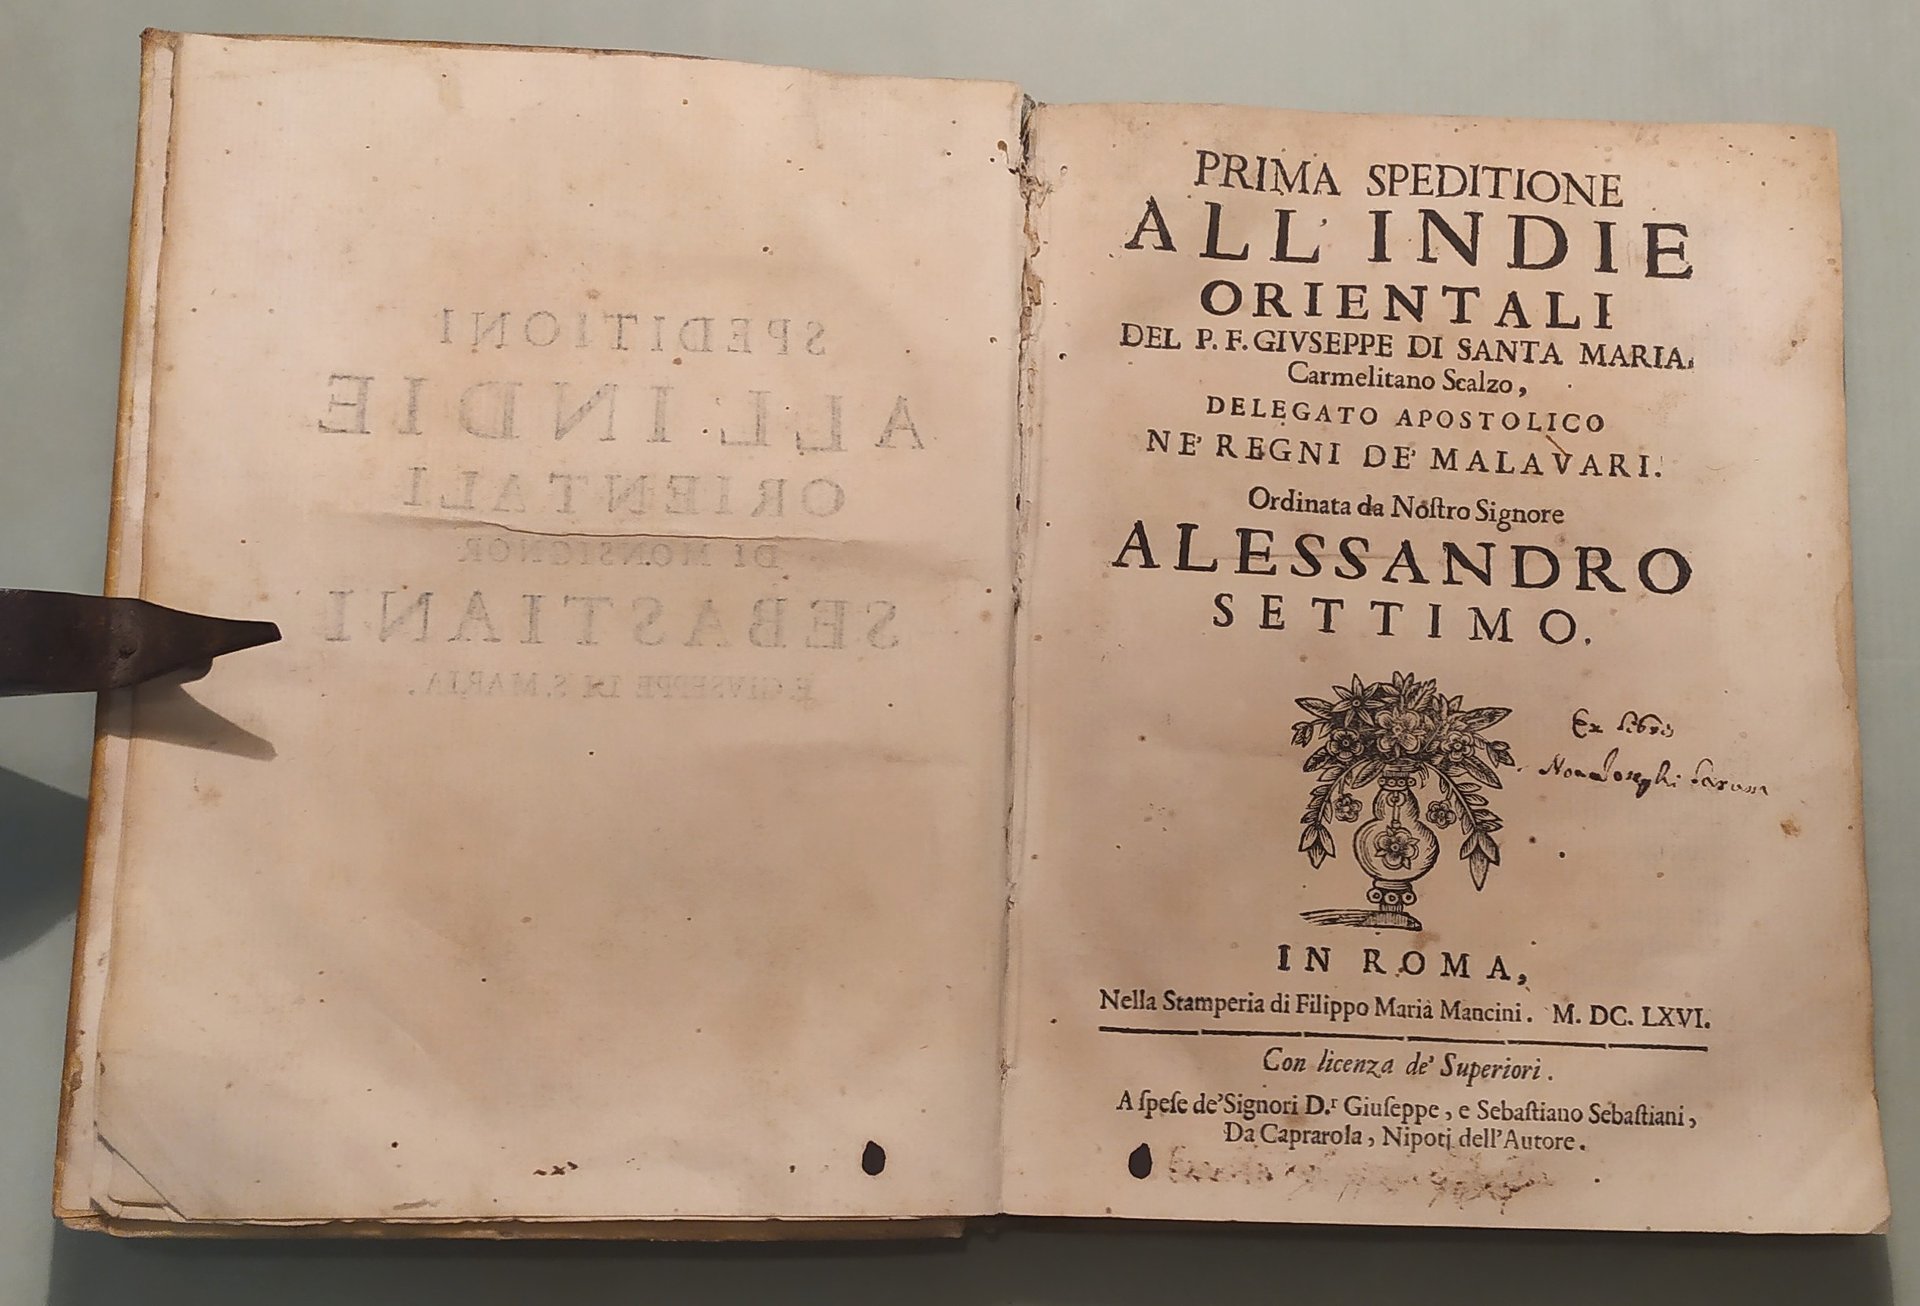 SPEDITIONI
ALL'INDIE
ORIENTALI
DI MONSIGNOR
SEBASTIANI
F. GIVSEPPE DI S. MARIA.
PRIMA SPEDITIONE
ALL'INDIE
ORIENTALI
DEL P. F. GIVSEPPE DI SANTA MARIA,
Carmelitano Scalzo,
DELEGATO APOSTOLICO
NE' REGNI DE' MALAVARI.
Ordinata da Noſtro Signore
ALESSANDRO
SETTIMO.
Ex libris
IN ROMA,
Nella Stamperia di Filippo Maria Mancini. M. DC. LXVI.
Con licenza de' Superiori.
A ſpeſe de' Signori D.r Giuſeppe, e Sebaſtiano Sebaſtiani,
Da Caprarola, Nipoti dell'Autore.